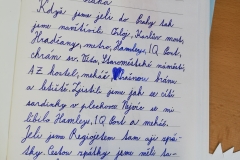 Když jsme jeli do Prahy tak
jsme navštívili Orloj, Karlův most,
Hradčany, metro, Hamleys, IQ Port,
chrám sv. Víta, Staroměstské náměstí,
AZ hostel, mekáč,
a letiště. Zjistili jsme jak se cítí
sardinky v plechovce. Nejvíce se mi
líbilo Hamleys, IQ Port a mekáč.
Jeli jsme Regiojetem tam i zpá-
tky. Cestou zpátky jsme měli